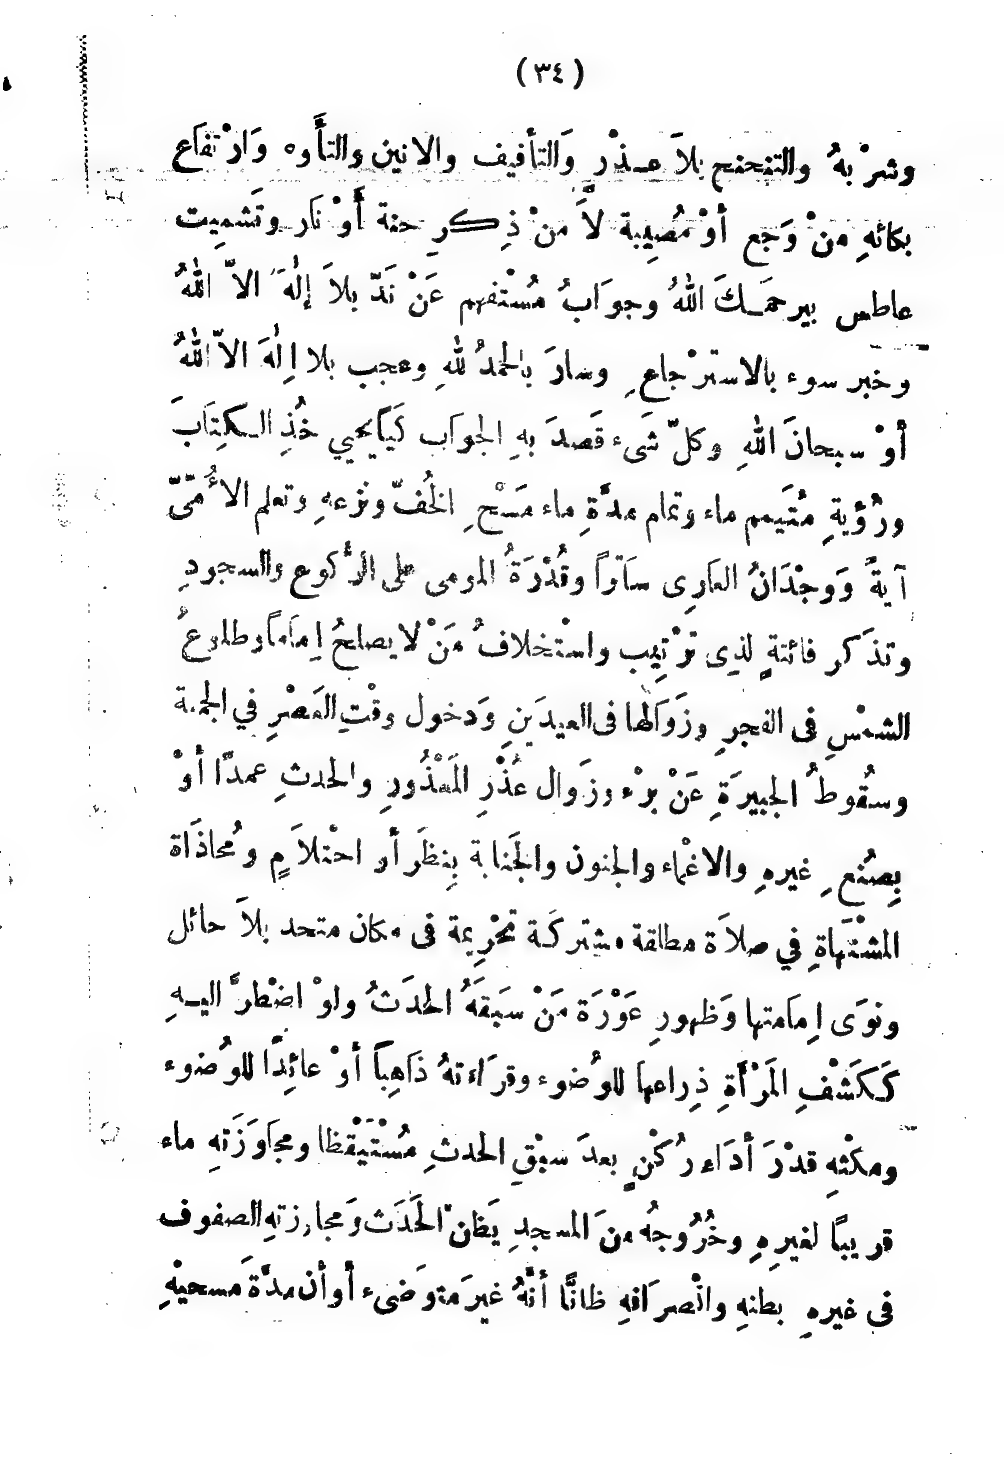 (٣٤)
وشرْبهُ والتنحنح بلاَ عـذْرٍ وَالتأفيف والانين والتأَّوه وَارْتفَاع
بكائهِ منْ وَجع أوْ مُصيبة لاَ منْ ذِكرِ جنة أَوْ نَار وتَشمِيت
عاطس بيرحمَـكَ اللهُ وجوَابُ مُسْتفهم عَنْ نَدّ بلاَ إلٰهَ الاّ اللهُ
وخبر سوء بالاسترْجاعِ وسارَ بالحمدُ للهِ وعجب بلا اِلٰهَ الاّ اللهُ
أوْ سبحانَ اللهِ وكلّ شَىء قَصدَ بهِ الجوَاب كَيَايحيي خُذِ الـكتَابَ
ورُؤيةِ مُتَيمم ماء وتمام مدَّةِ ماء مَسْحِ الخُفّ ونزعهِ وتعلم الاُمّىّ
آيةً وَوجْدَانُ العَارِى سَاتراً وقُدْرَةُ المومى على الرُّكوع والسجودِ
وتذَكر فائتةٍ لذِى ترْتِيب واسْتخلافُ مَنْ لا يصلحُ اِمَاماً وطلوعُ
الشمْسِ فى الفجرِ وزَوَالها فى العيدَينِ وَدخول وقْتِ العَصْرِ في الجمعة
وسقُوطُ الجبيرَةِ عَنْ برْء وزَوال عُذْرِ المَعْذُورِ والحدثِ عمدًا أوْ
بِصُنعِ غيرهِ والاغْماء والجنون والجَنابة بِنظَر أو احْتلاَمٍ ومُحاذَاة
المشْتهَاةِ في صلاَة مطلقة مشتركَة تحْرِيمة فى مكان متحد بلاَ حائل
ونوَى اِمَامتها وَظهورِ عَوْرَة مَنْ سَبَقهُ الحدَثُ ولوْ اضْطرَّ اليـهِ
كَكَشْفِ المَرْأَةِ ذِراعها للوُضوء وقرَاءتهُ ذَاهِباً أوْ عائدًا للوُضوء
ومكْثهِ قدْرَ أدَاء رُكْنٍ بعدَ سبْقِ الحدثِ مُسْتَيْقظا ومجاوَزَتهِ ماء
قريبًا لغيرهِ وخُرُوجهُ منَ المسجدِ يَظنّ الحَدَث وَمجاوزتهِ الصفوف
فى غيرهِ بظنهِ وانْصرَافهِ ظانًّا أنَّهُ غيرَ متوَضىء أو أن مدَّةَ مسحيْهِ